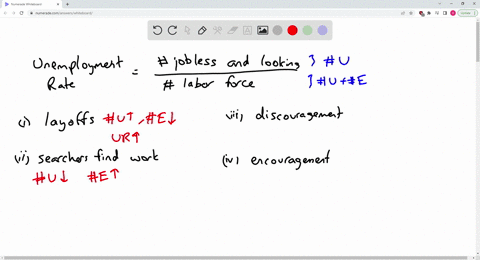 Numerade Whiteboard
numerade.com/answers/whiteboard/
Update
Unemployment Rate = # jobless and looking } # U
# labor force } # U + # E
(i) layoffs #U↑, #E↓
UR↑
(ii) searchers find work
#U↓ #E↑
(iii) discouragement
(iv) encouragement